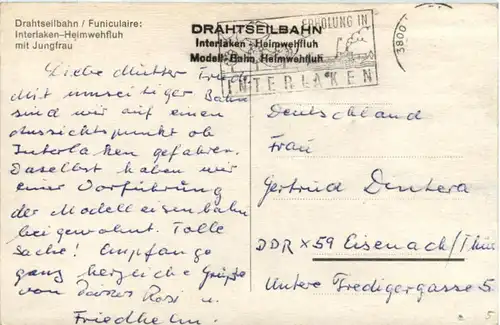 Drahtseilbahn / Funiculaire:
Interlaken–Heimwehfluh
mit Jungfrau
DRAHTSEILBAHN
Interlaken - Heimwehfluh
Modell-Bahn Heimwehfluh
ERHOLUNG IN
INTERLAKEN
3800
Liebe Mutter
Mit umseitiger Bahn
sind wir auf einen
Aussichtspunkt ob
Interlaken gefahren.
Daselbst haben wir
einer Vorführung
der Modelleisenbahn
beigewohnt. Tolle
Sache! Empfange
ganz herzliche Grüße
von Rosi u.
Friedhelm.
Deutschland
Frau
Gertrud Dintera
DDR X 59 Eisenach/Thür
Untere Predigergasse 5